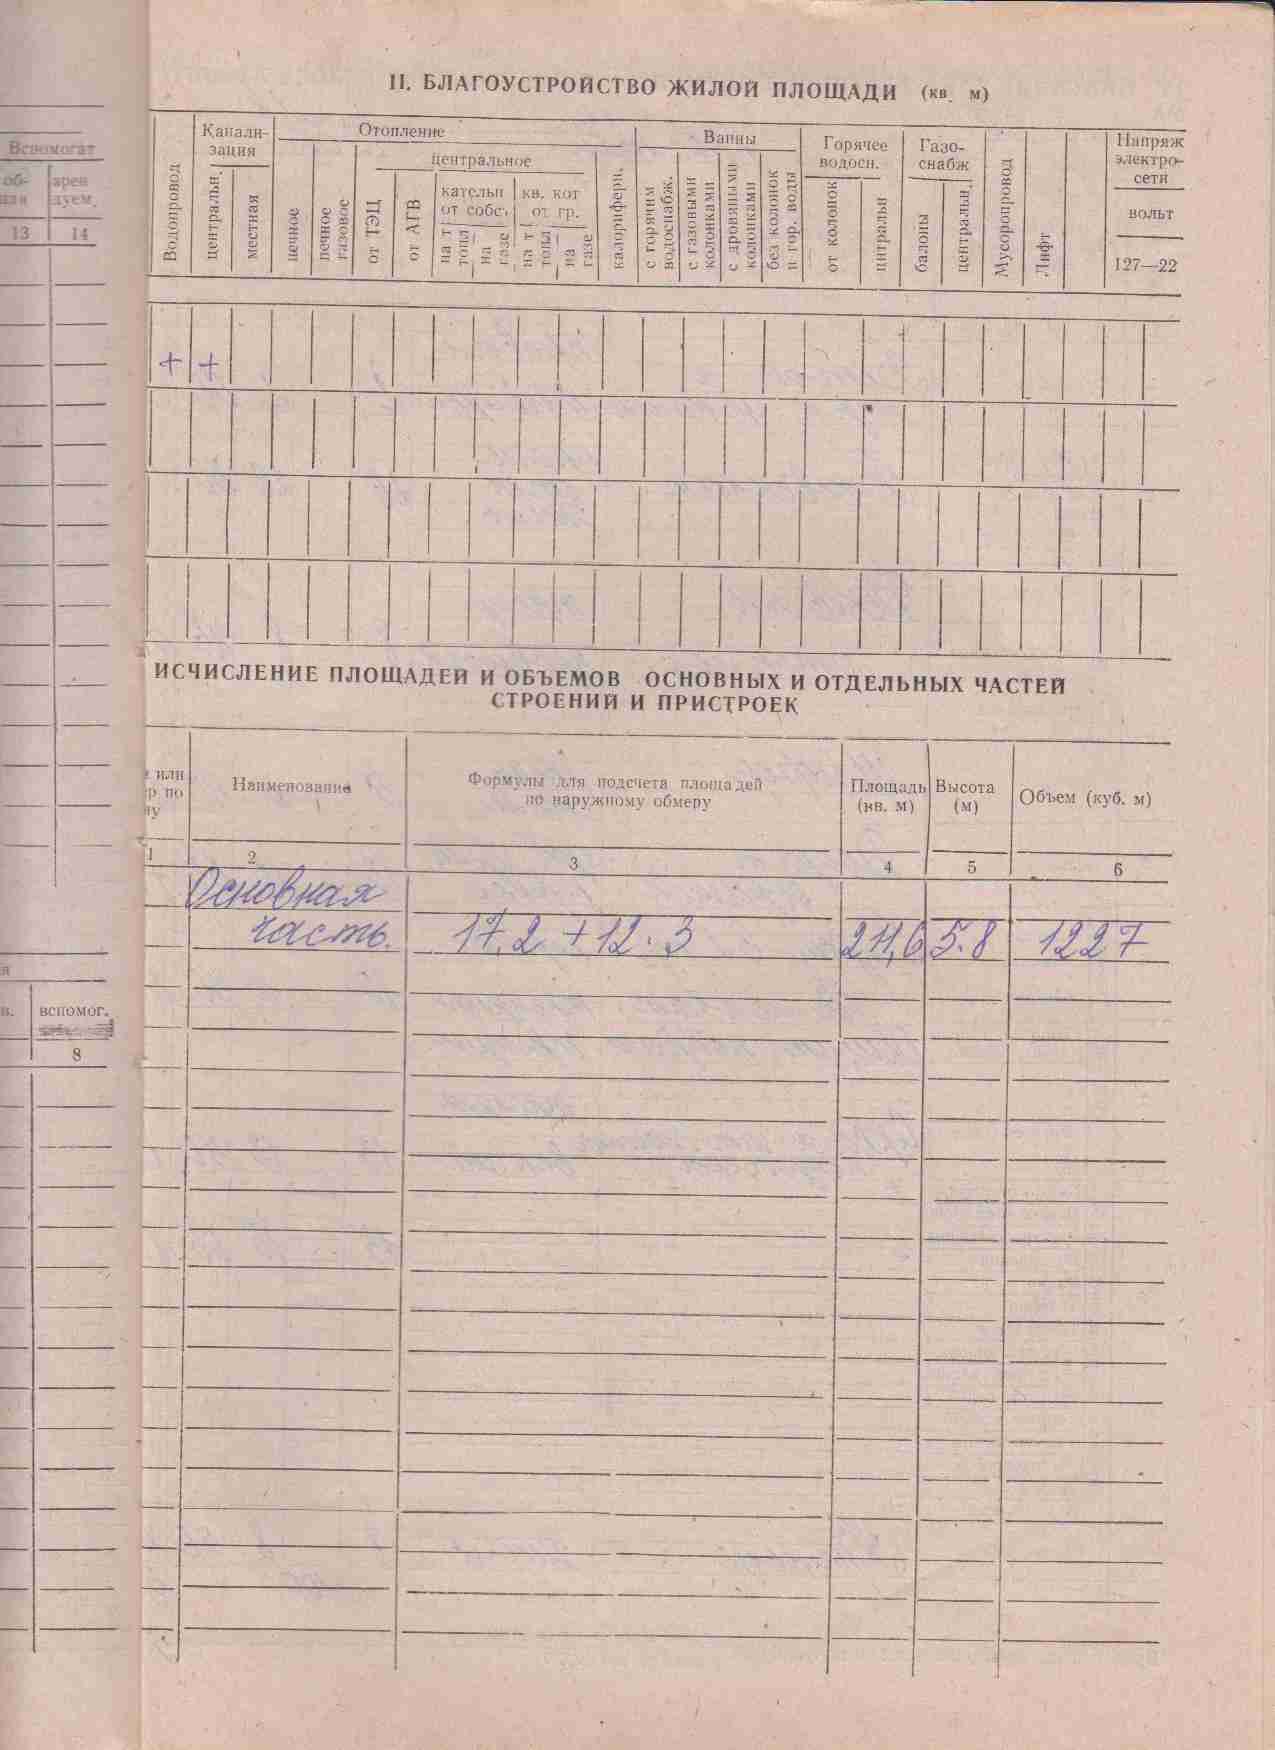 II. БЛАГОУСТРОЙСТВО ЖИЛОЙ ПЛОЩАДИ (кв. м)
Вспомогат
об-
арен
дуем.
13 14
Водопровод
Канали-
зация
центральн.
местная
Отопление
печное
печное
газовое
центральное
от ТЭЦ
от АГВ
от собс.
на т
топл
на
газе
кв. кот
от гр.
на т
топл
на
газе
калориферн.
Ванны
с горячим
водоснабж.
с газовыми
колонками
с дровяными
колонками
без колонок
и гор. воды
Горячее
водосн.
от колонок
Газо-
снабж
балоны
центральн.
Мусоропровод
Лифт
Напряж
электро-
сети
вольт
127—22
+ +
ИСЧИСЛЕНИЕ ПЛОЩАДЕЙ И ОБЪЕМОВ ОСНОВНЫХ И ОТДЕЛЬНЫХ ЧАСТЕЙ
СТРОЕНИЙ И ПРИСТРОЕК
или
р по
ну
Наименование
Формулы для подсчета площадей
по наружному обмеру
Площадь
(кв. м)
Высота
(м)
Объем (куб. м)
1 2 3 4 5 6
Основная
часть. 17.2 + 12.3 211,6 5.8 1227
я
в.
вспомог.
8